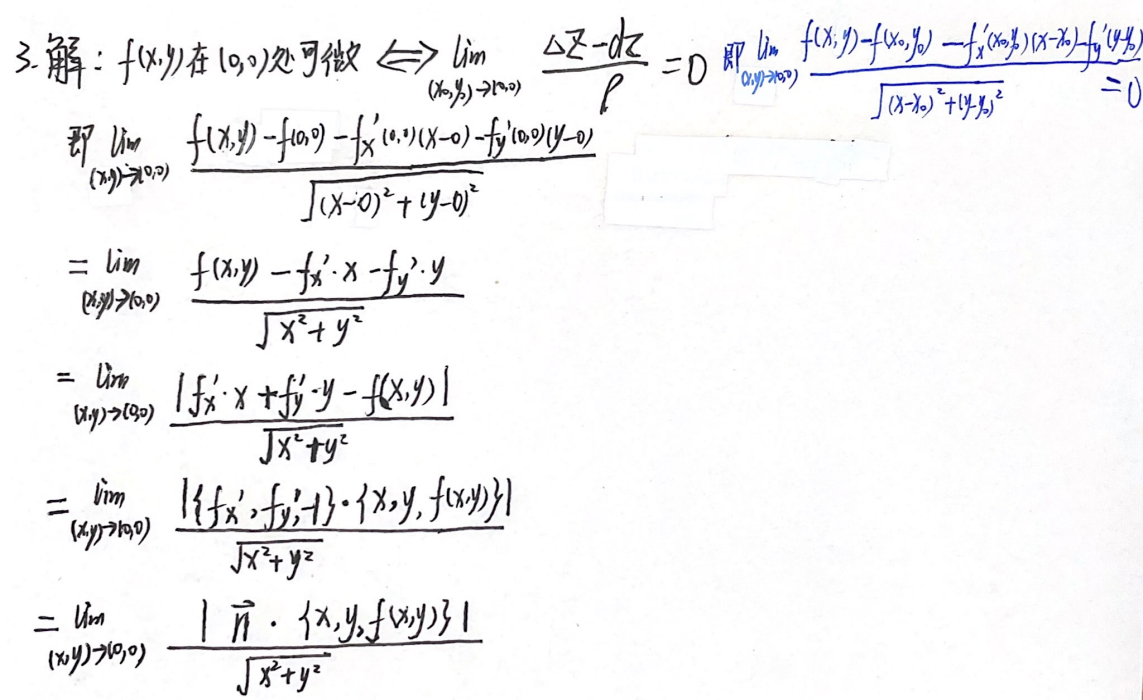 3. 解：f(x,y)在(0,0)处可微 ⟺ lim_{(x₀,y₀)→(0,0)} (Δz-dz)/ρ = 0 即 lim_{(x,y)→(0,0)} (f(x,y)-f(x₀,y₀)-f_x'(x₀,y₀)(x-x₀)-f_y'(y-y₀))/√((x-x₀)²+(y-y₀)²) = 0
即 lim_{(x,y)→(0,0)} (f(x,y)-f(0,0)-f_x'(0,0)(x-0)-f_y'(0,0)(y-0))/√((x-0)²+(y-0)²)
= lim_{(x,y)→(0,0)} (f(x,y)-f_x'·x-f_y'·y)/√(x²+y²)
= lim_{(x,y)→(0,0)} |f_x'·x+f_y'·y-f(x,y)|/√(x²+y²)
= lim_{(x,y)→(0,0)} |{f_x',f_y',-1}·{x,y,f(x,y)}|/√(x²+y²)
= lim_{(x,y)→(0,0)} |n⃗·{x,y,f(x,y)}|/√(x²+y²)